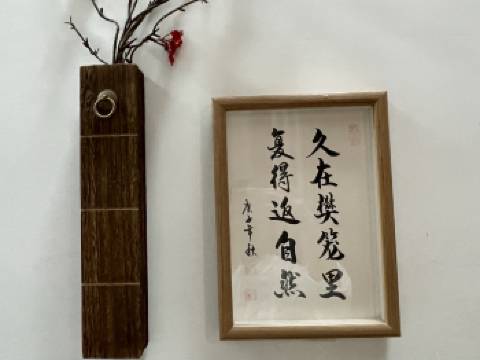 久在樊笼里
复得返自然
庚子年秋